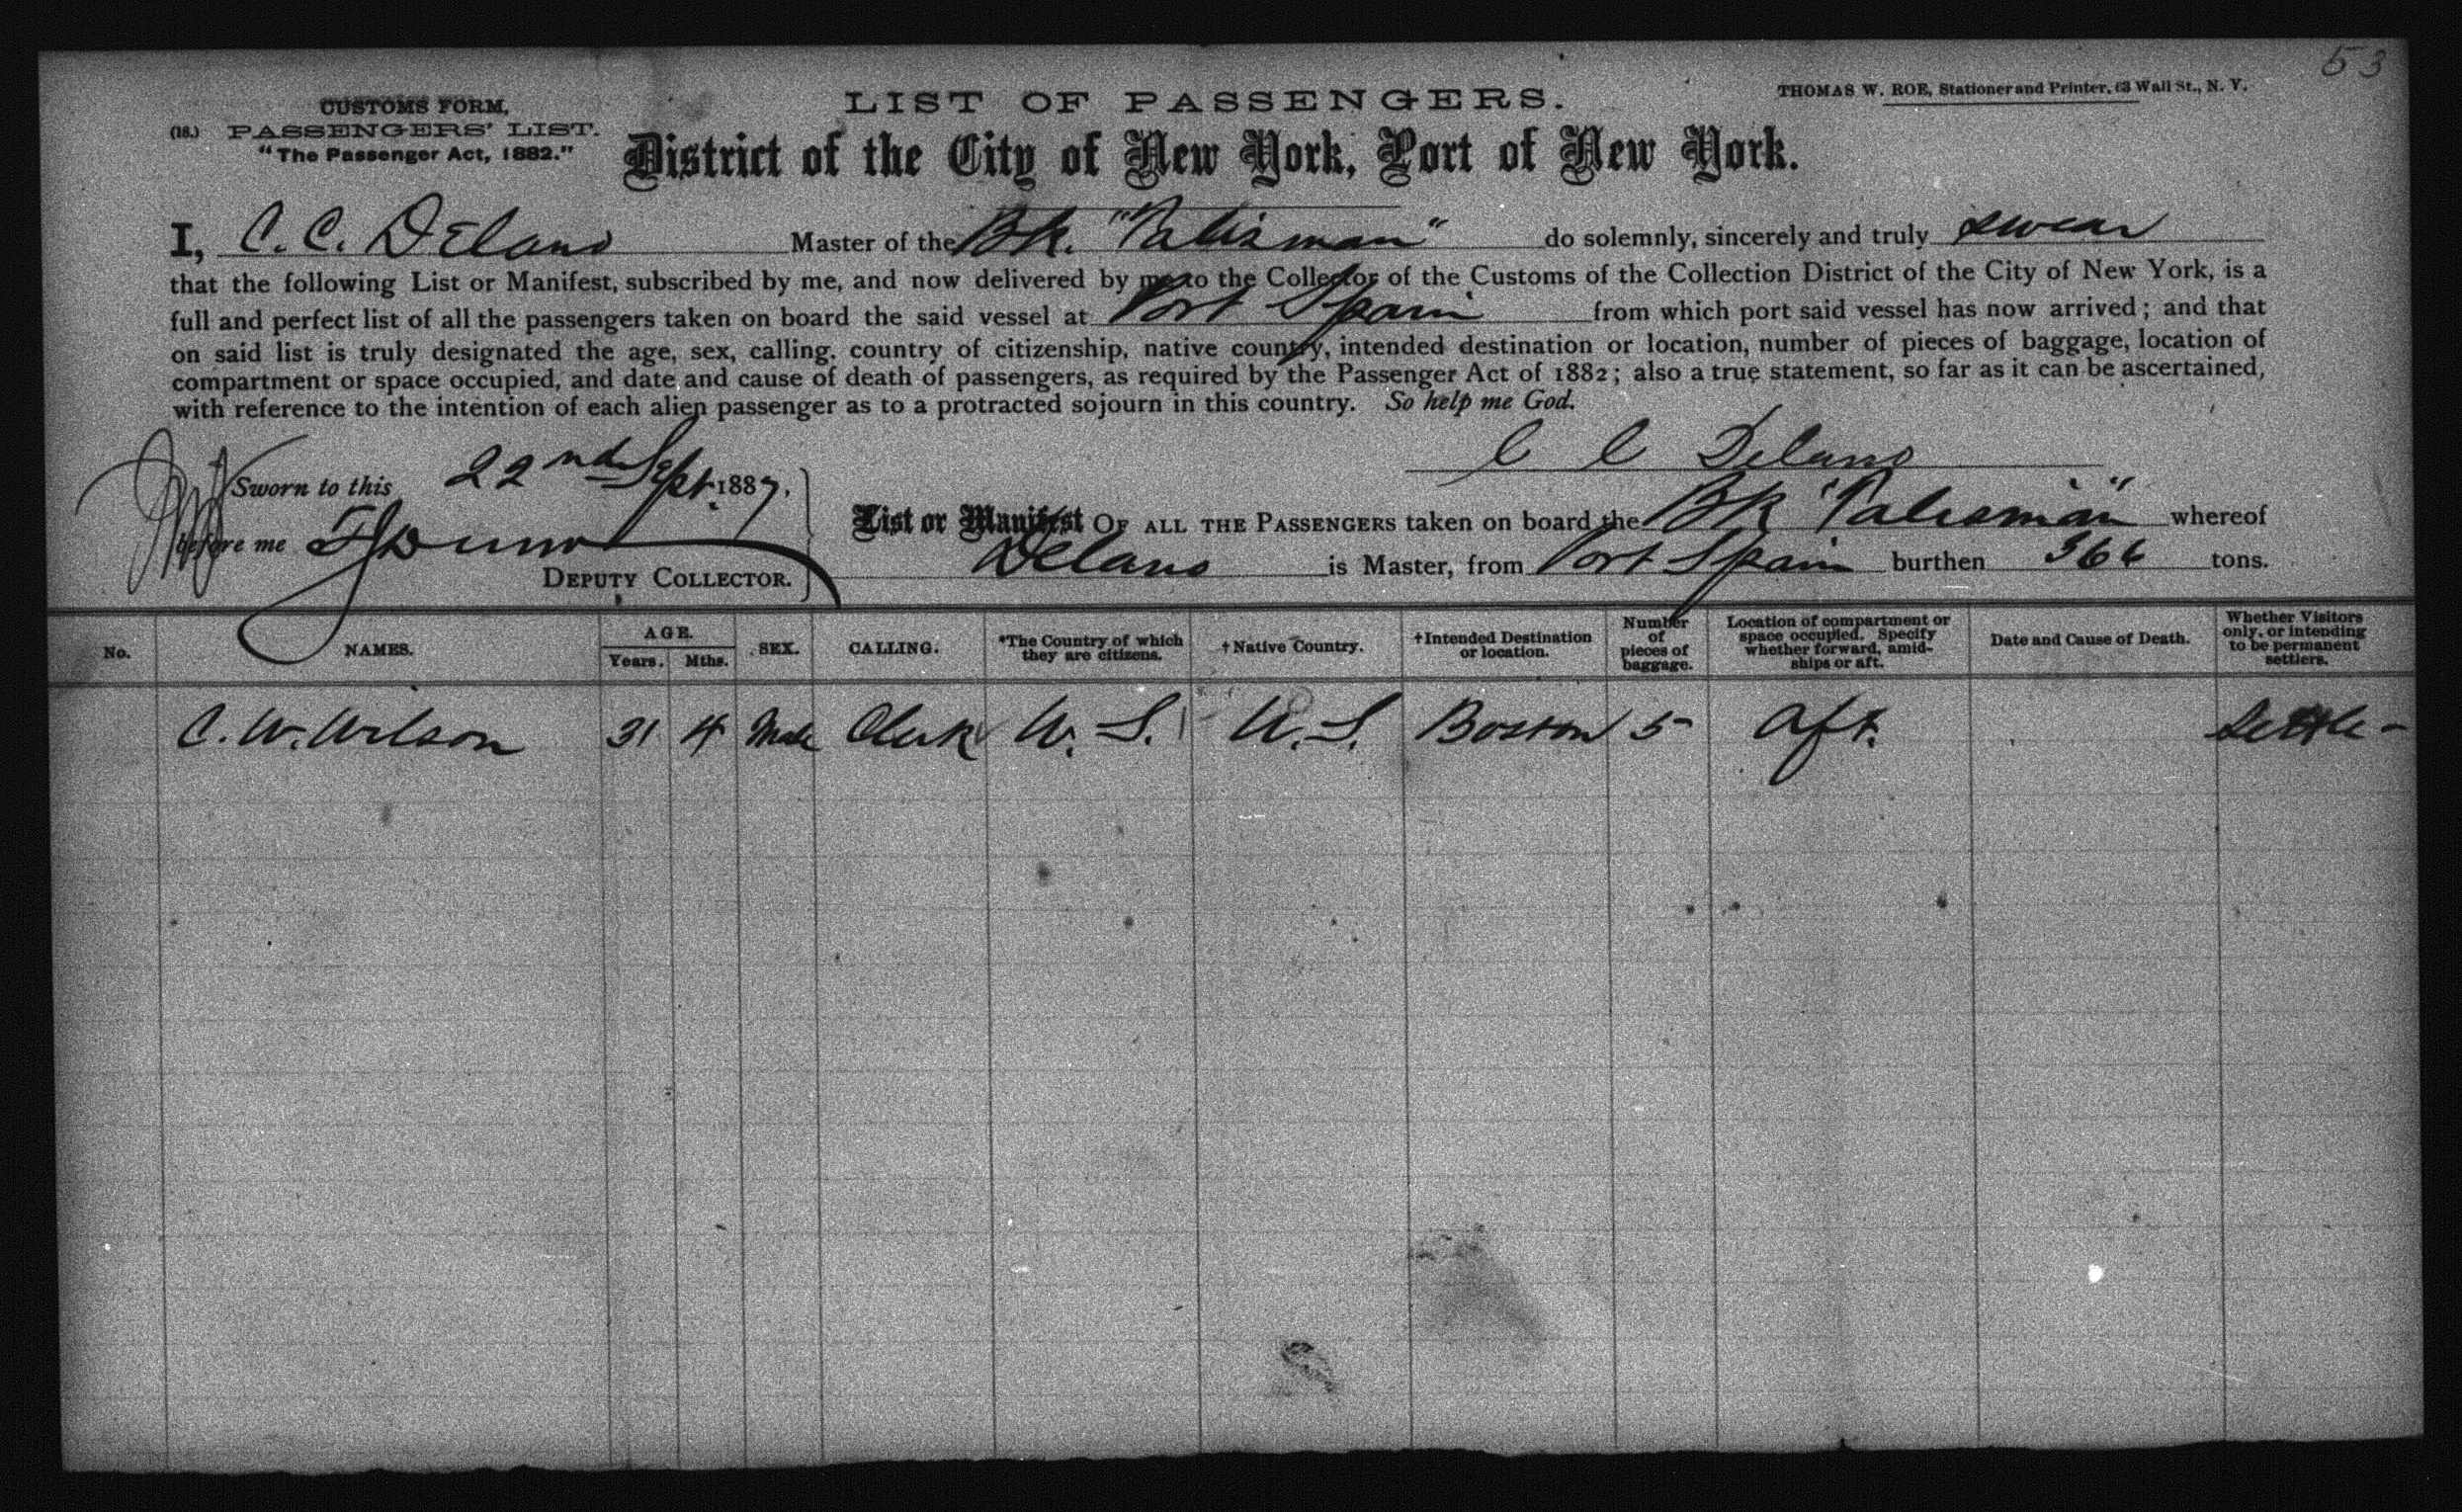 53
CUSTOMS FORM,
(18.) PASSENGERS' LIST.
"The Passenger Act, 1882."
LIST OF PASSENGERS.
THOMAS W. ROE, Stationer and Printer, 63 Wall St., N. Y.
District of the City of New York, Port of New York.
I, C. C. Delano Master of the Bk. "Talisman" do solemnly, sincerely and truly swear
that the following List or Manifest, subscribed by me, and now delivered by me to the Collector of the Customs of the Collection District of the City of New York, is a
full and perfect list of all the passengers taken on board the said vessel at Port Spain from which port said vessel has now arrived; and that
on said list is truly designated the age, sex, calling, country of citizenship, native country, intended destination or location, number of pieces of baggage, location of
compartment or space occupied, and date and cause of death of passengers, as required by the Passenger Act of 1882; also a true statement, so far as it can be ascertained,
with reference to the intention of each alien passenger as to a protracted sojourn in this country. So help me God.
C C Delano
Sworn to this 22nd Sept. 1887,
before me
DEPUTY COLLECTOR.
List or Manifest OF ALL THE PASSENGERS taken on board the Bk "Talisman" whereof
Delano is Master, from Port Spain burthen 366 tons.
No. NAMES. AGE. Years. Mths. SEX. CALLING. *The Country of which they are citizens. †Native Country. †Intended Destination or location. Number of pieces of baggage. Location of compartment or space occupied. Specify whether forward, amidships or aft. Date and Cause of Death. Whether Visitors only, or intending to be permanent settlers.
C. W. Wilson 31 4 Male Clerk U. S. U. S. Boston 5 Aft. Settle-